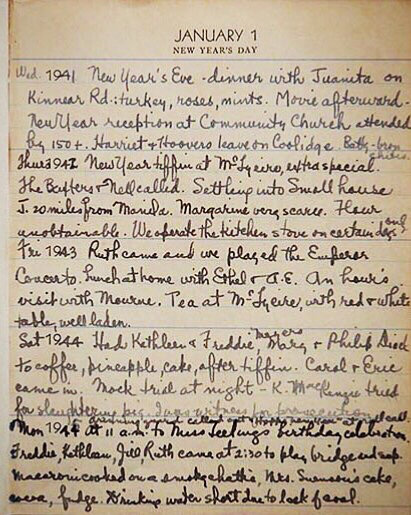 JANUARY 1
NEW YEAR'S DAY
Wed. 1941 New Year's Eve - dinner with Juanita on
Kinnear Rd.: turkey, roses, mints. Movie afterward.
New Year reception at Community Church attended
by 150+. Harriet + Hoovers leave on Coolidge. Betty-bron
Thur 1942 New Year tiffin at McIntire, extra special.
The Baxters + Nell called. Settling into Small house
J. 20 miles from Manila. Margarine very scarce. Flour
unobtainable. We operate the kitchen stove on certain days only
Fri 1943 Ruth came and we played the Emperor
Concerto. Lunch at home with Ethel + A.E. An hour's
visit with Mourne. Tea at with red + white
table, well laden.
Sat 1944 Had Kathleen + Freddie, Mary + Philip
to coffee, pineapple, cake, after tiffin. Carol + Eric
came in. Mock trial at night - K. MacKenzie tried
for slaughtering pig. I was witness for prosecution
called out "Happy New Year" at roll call.
Mon 1944 at 11 a.m. to Miss birthday celebration
Freddie, Kathleen, Jill, Ruth came at 2:30 to play bridge and sup.
Macaroni cooked on a smoky chattie, Mrs. Swenson's cake,
cocoa, fudge. Drinking water short due to lack of coal.